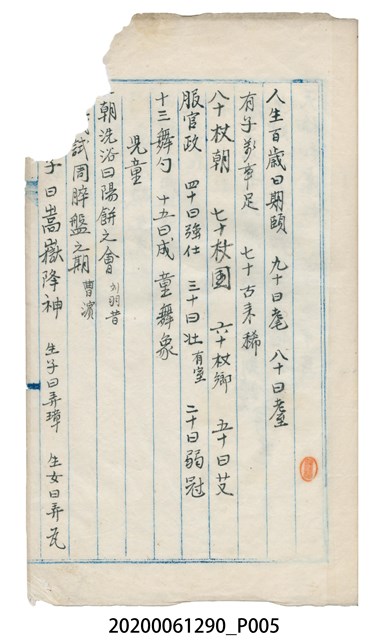 人生百歲曰期頤 九十曰耄 八十曰耋
有子萬事足 七十古來稀
八十杖朝 七十杖國 六十杖鄉 五十曰艾
服官政 四十曰強仕 三十曰壯有室 二十曰弱冠
十三舞勺 十五曰成童舞象
兒童
朝洗浴曰湯餅之會 刘羽昔
試周晬盤之期 曹濱
子曰嵩嶽降神 生子曰弄璋 生女曰弄瓦
20200061290_P005